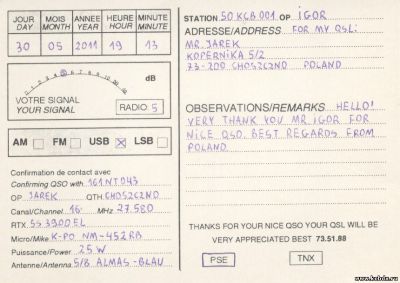 JOUR DAY
MOIS MONTH
ANNEE YEAR
HEURE HOUR
MINUTE MINUTE
30 05 2011 19 13
dB
VOTRE SIGNAL
YOUR SIGNAL
RADIO 5
AM FM USB LSB
Confirmation de contact avec
Confirming QSO with 161NT043
OP. JAREK QTH. CHOSZCZNO
Canal/Channel 16 MHZ 27.580
RTX. SS 3900EL
Micro/Mike K-PO NM-452RB
Puissance/Power 25W
Antenne/Antenna 5/8 ALMAS-BLAU
STATION 50KCB001 OP. IGOR
ADRESSE/ADDRESS FOR MY QSL:
MR. JAREK
KOPERNIKA 5/2
73-200 CHOSZCZNO POLAND
OBSERVATIONS/REMARKS HELLO!
VERY THANK YOU MR IGOR FOR
NICE QSO. BEST REGARDS FROM
POLAND
THANKS FOR YOUR NICE QSO YOUR QSL WILL BE
VERY APPRECIATED BEST 73.51.88
PSE TNX
www.kabda.ru